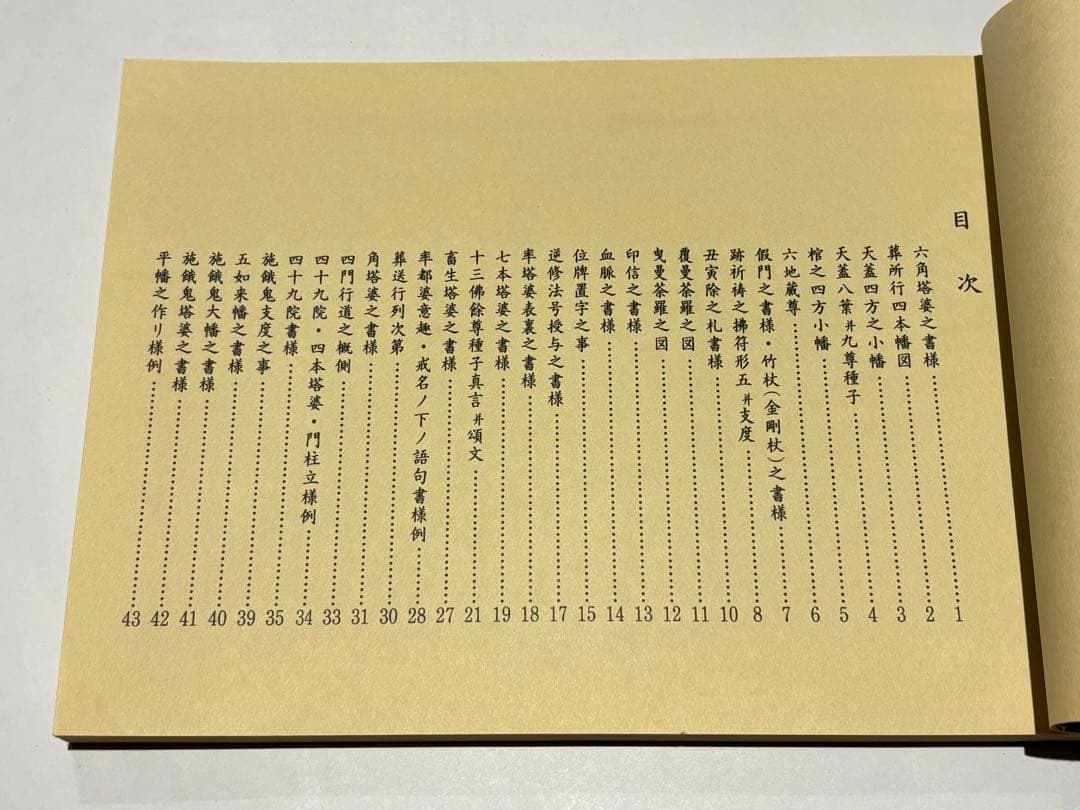 目次
六角塔婆之書様……1
葬所行四本幡図……2
天蓋四方之小幡……3
天蓋八葉并九尊種子……4
棺之四方小幡……5
六地蔵尊……6
假門之書様・竹杖(金剛杖)之書様……7
跡祈祷之拂符形五并支度……8
丑寅除之札書様……10
覆曼荼羅之図……11
曳曼荼羅之図……12
印信之書様……13
血脈之書様……14
位牌置字之事……15
逆修法号授与之書様……17
率塔婆表裏之書様……18
七本塔婆之書様……19
十三佛餘尊種子真言并頌文……21
畜生塔婆之書様……27
率都婆意趣・戒名ノ下ノ語句書様例……28
葬送行列次第……30
角塔婆之書様……31
四門行道之概側……33
四十九院・四本塔婆・門柱立様例……34
四十九院書様……35
施餓鬼支度之事……39
五如来幡之書様……40
施餓鬼大幡之書様……41
施餓鬼塔婆之書様……42
平幡之作リ様例……43